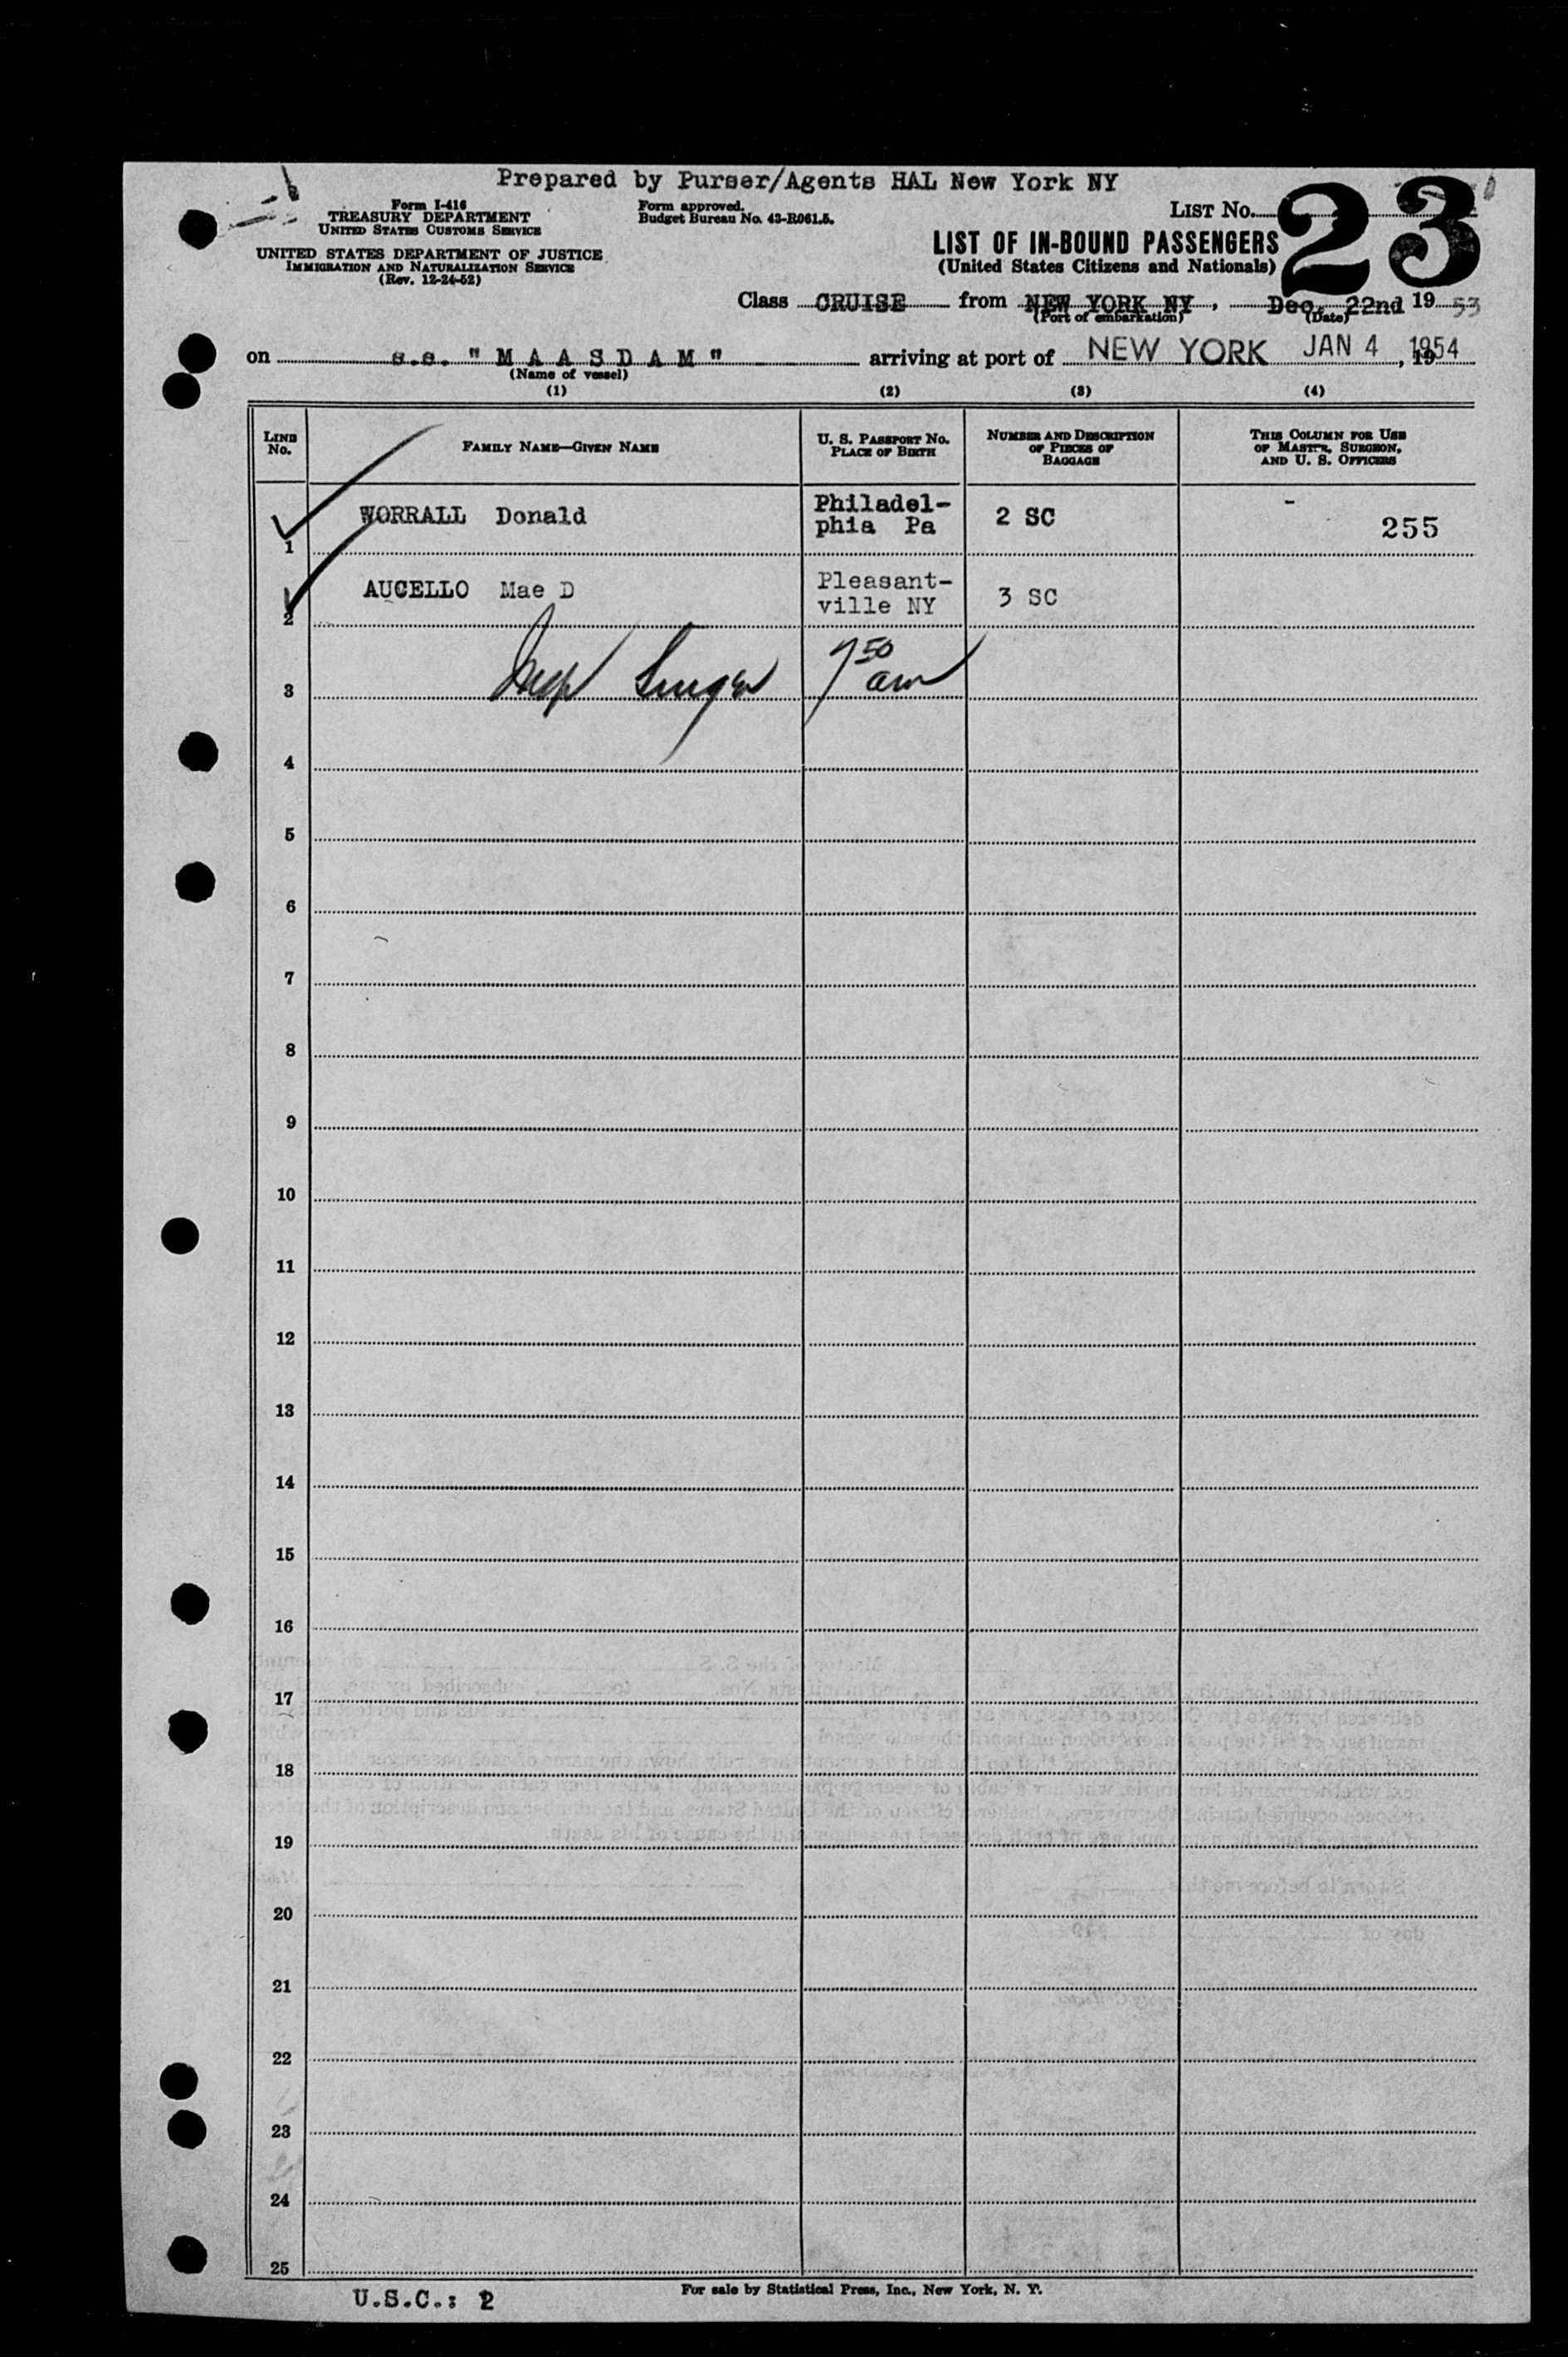 Prepared by Purser/Agents HAL New York NY
Form I-416
TREASURY DEPARTMENT
UNITED STATES CUSTOMS SERVICE
UNITED STATES DEPARTMENT OF JUSTICE
IMMIGRATION AND NATURALIZATION SERVICE
(Rev. 12-24-52)
Form approved.
Budget Bureau No. 43-R061.5.
LIST No. 23
LIST OF IN-BOUND PASSENGERS
(United States Citizens and Nationals)
Class CRUISE from NEW YORK NY, Dec. 22nd 19 53
(Port of embarkation) (Date)
on s.s. "MAASDAM" arriving at port of NEW YORK JAN 4 1954, 19
(Name of vessel)
(1) (2) (3) (4)
LINE No. FAMILY NAME—GIVEN NAME U. S. PASSPORT No. PLACE OF BIRTH NUMBER AND DESCRIPTION OF PIECES OF BAGGAGE THIS COLUMN FOR USE OF MASTER, SURGEON, AND U. S. OFFICERS
1 WORRALL Donald Philadel-phia Pa 2 SC 255
2 AUCELLO Mae D Pleasant-ville NY 3 SC
3 7 50 am
4
5
6
7
8
9
10
11
12
13
14
15
16
17
18
19
20
21
22
23
24
25
U.S.C.: 2
For sale by Statistical Press, Inc., New York, N. Y.